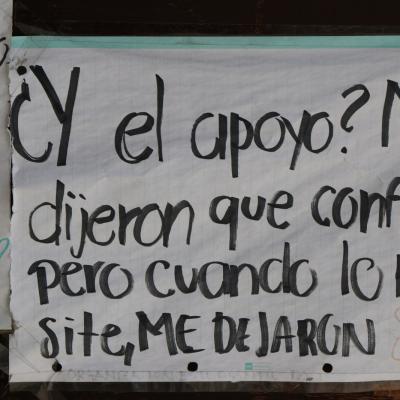 ¿Y el apoyo?
dijeron que conf
pero cuando lo
site, ME DEJARON